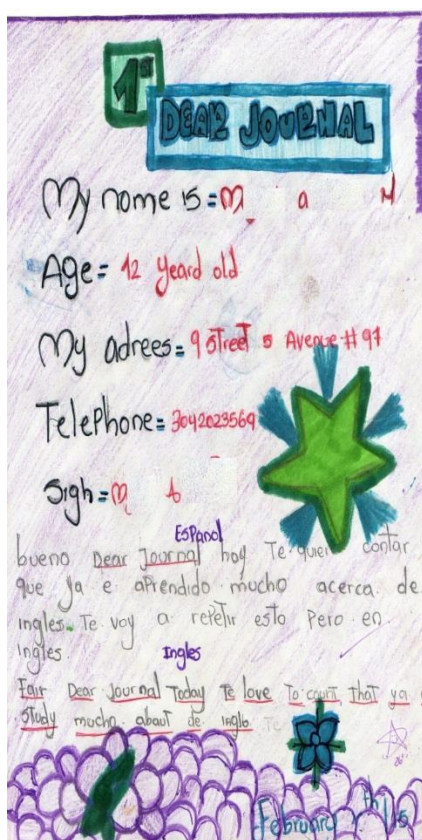 1st
DEAR JOURNAL
My name is = M a M
Age = 12 yeard old
My adrees = 9 street 5 Avenue # 97
Telephone = 3042023569
Sigh = M b
Español
bueno Dear Journal hoy Te quier contar
que ya e aprendido mucho acerca de
ingles. Te voy a repetir esto Pero en.
ingles.
Ingles
Fair Dear Journal Today Te love To court, that ya
study mucho abaut de inglo. Te
February th 15